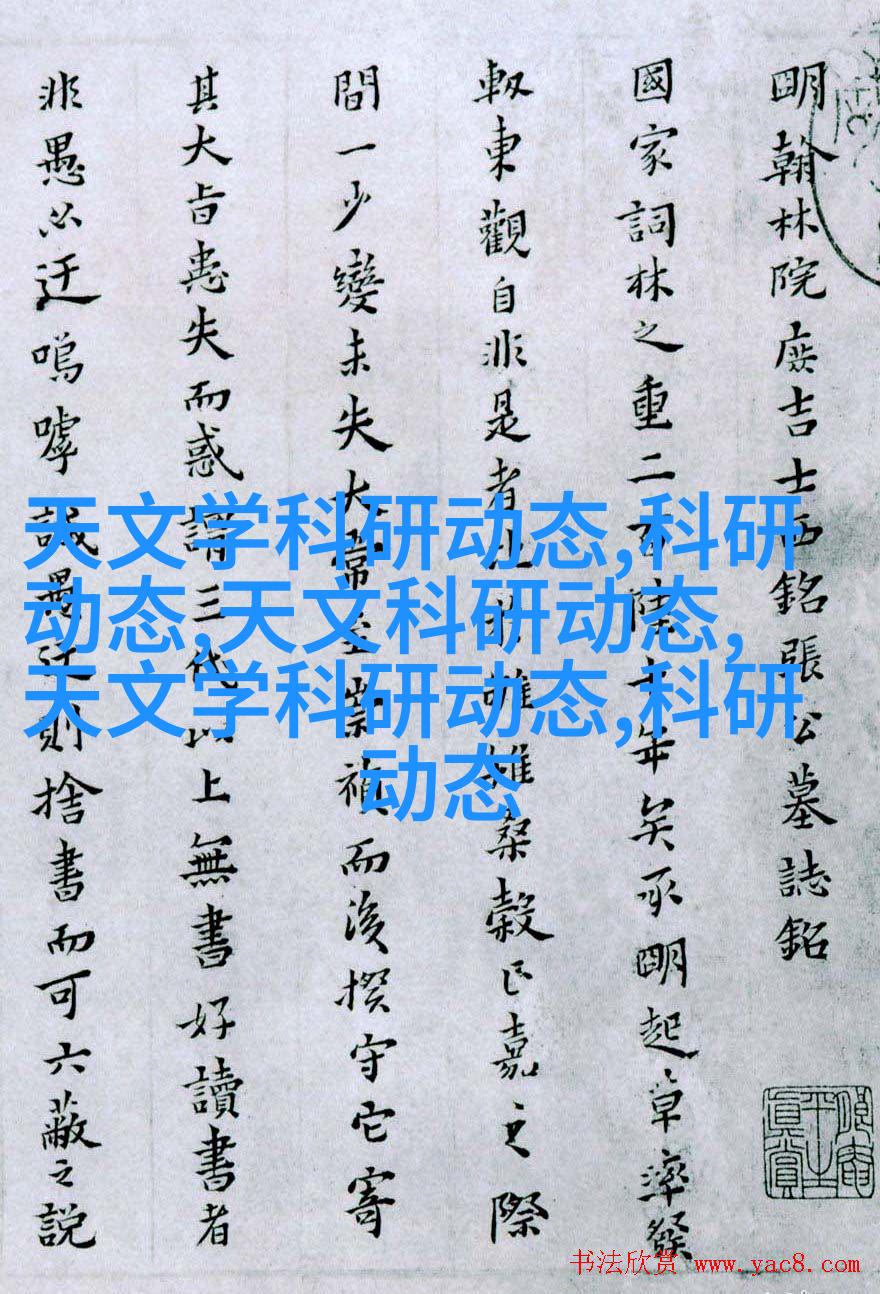 明翰林院庶吉士西銘張公墓誌銘
國家詞林之重二百陸十年矣承明起草奉
東觀自非是者比雖桑穀正嘉之際
間一少變未失大常至崇禎而後揆守它寄
其大旨患失而惑謂三代以上無書好讀書者
非愚必迂嗚嘑誠愚迂則捨書而可六蔽之説
天文学科研动态,科研
动态,天文科研动态,
天文学科研动态,科研
动态
书法欣赏 www.yac8.com